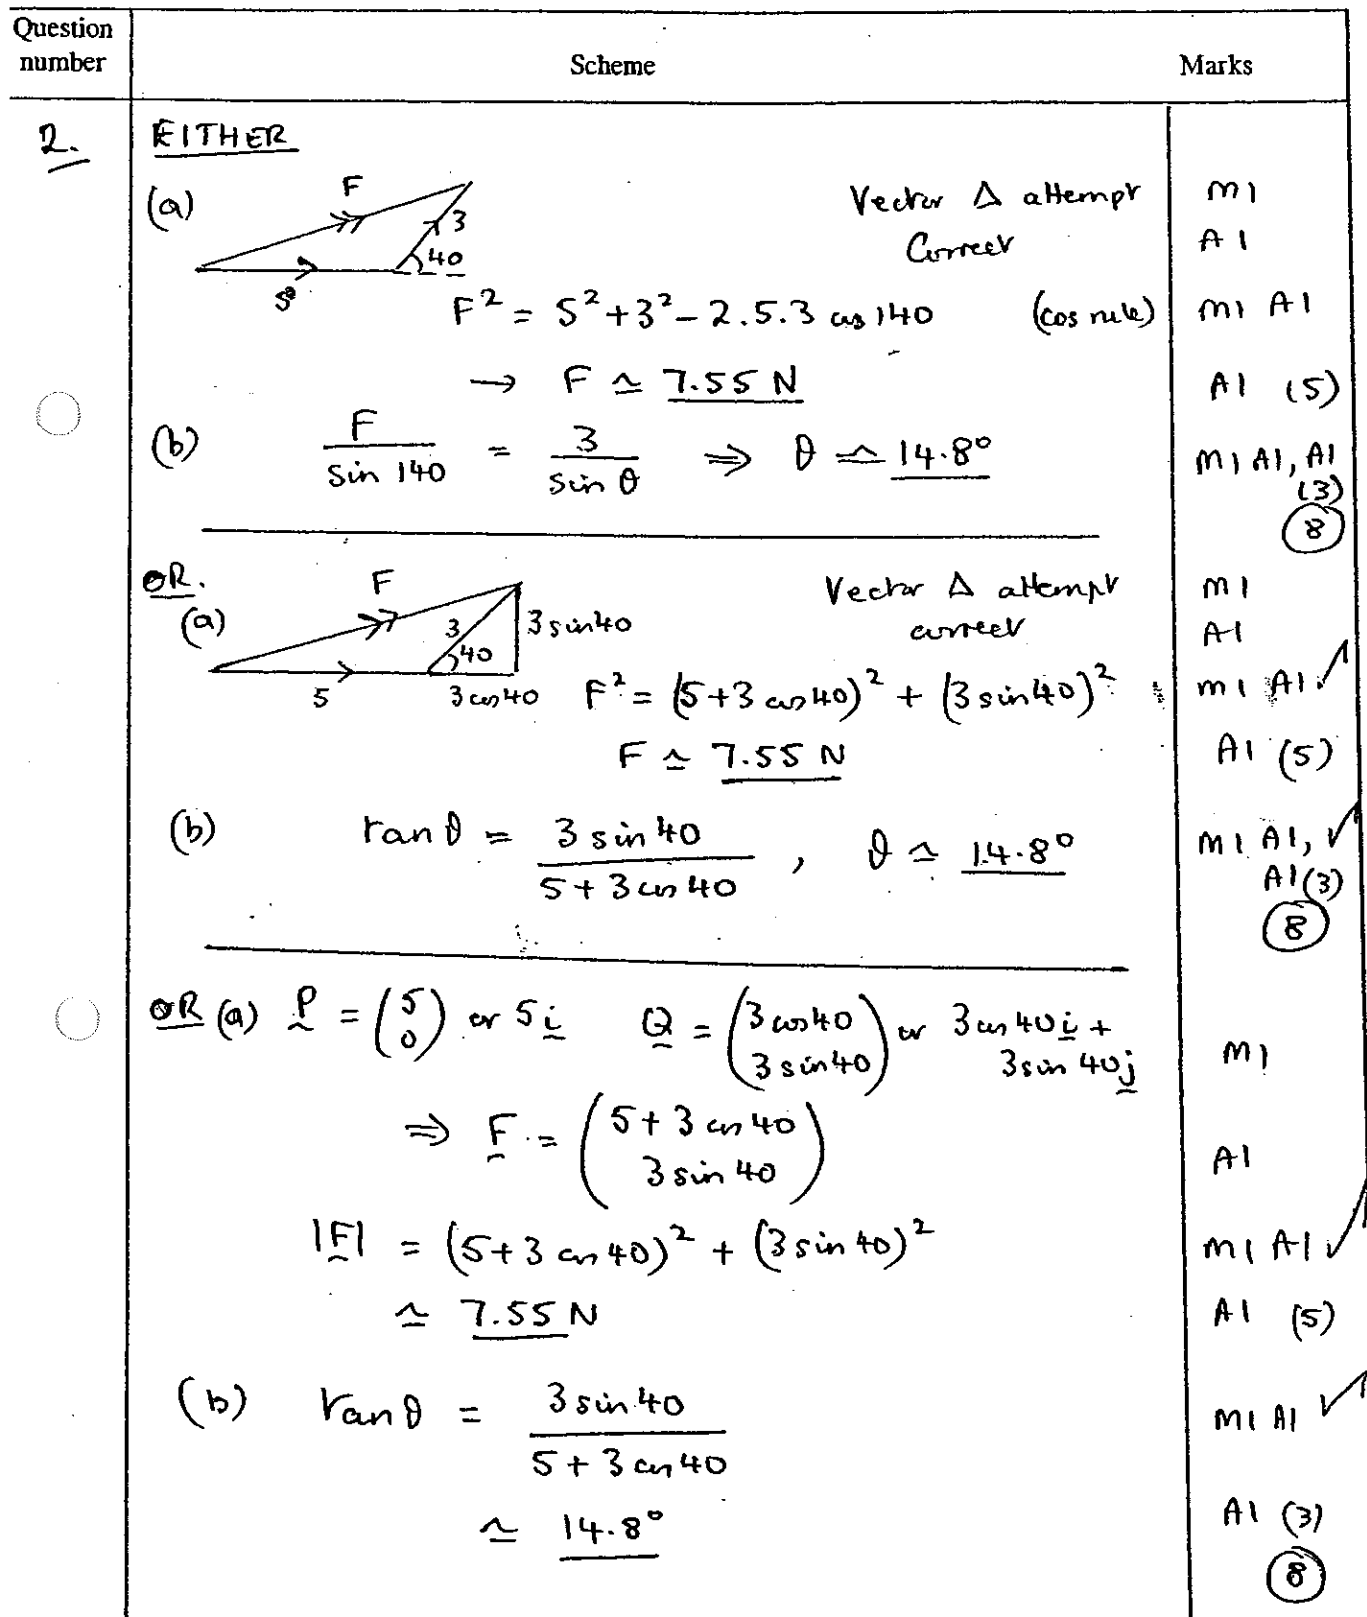 Question number
Scheme
Marks
2.
EITHER
(a)
F
3
40
5
Vector Δ attempt M1
Correct A1
F² = 5² + 3² - 2.5.3 cos 140 (cos rule) M1 A1
→ F ≃ 7.55 N A1 (5)
(b) F / sin 140 = 3 / sin θ ⇒ θ ≃ 14.8° M1 A1, A1
(3)
8
OR.
(a)
F
3
40
3 sin 40
5
3 cos 40
Vector Δ attempt M1
correct A1
F² = (5+3 cos 40)² + (3 sin 40)² M1 A1 √
F ≃ 7.55 N A1 (5)
(b) tan θ = 3 sin 40 / 5 + 3 cos 40 , θ ≃ 14.8° M1 A1, √
A1 (3)
8
OR (a) P = (5 0) or 5i Q = (3 cos 40 3 sin 40) or 3 cos 40i +
3 sin 40j M1
⇒ F = (5 + 3 cos 40 3 sin 40) A1
|F| = (5+3 cos 40)² + (3 sin 40)² M1 A1 √
≃ 7.55 N A1 (5)
(b) tan θ = 3 sin 40 / 5 + 3 cos 40 M1 A1 √
≃ 14.8° A1 (3)
8